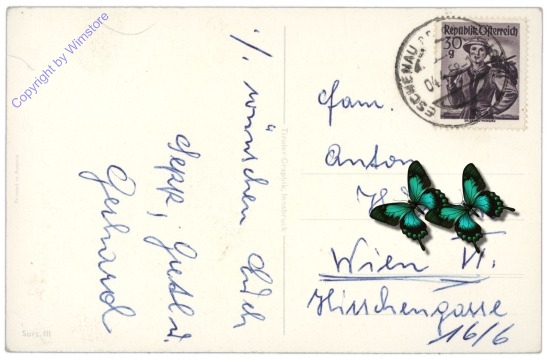 Copyright by Wimstore
·/. wünschen Euch
Sepp, Gustl u.
Gerhard
Tiroler Graphik, Innsbruck
Republik Österreich
30
g
ESCHENAU
04
Fam.
Anton
Wien VI.
Hirschengasse
16/6